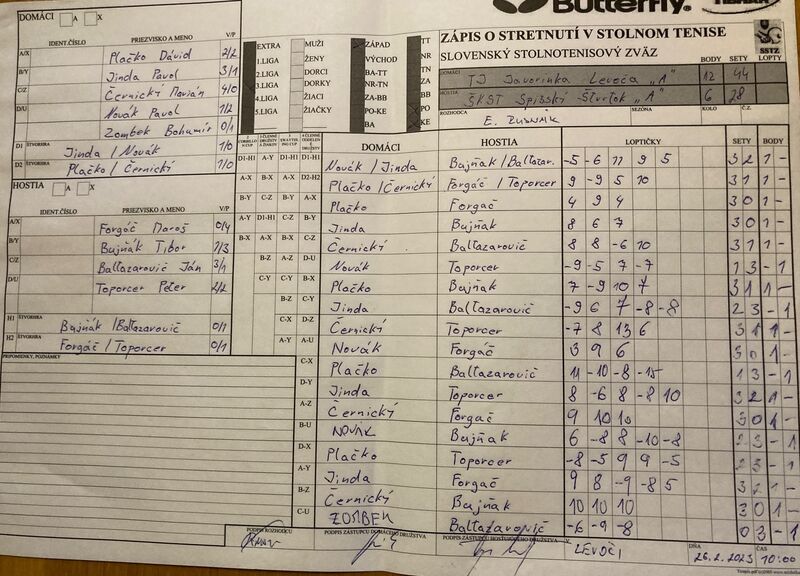 Butterfly
ZÁPIS O STRETNUTÍ V STOLNOM TENISE
SLOVENSKÝ STOLNOTENISOVÝ ZVÄZ
SSTZ
DOMÁCI A X
IDENT.ČÍSLO PRIEZVISKO A MENO V/P
A/X Plačko Dávid 2/2
B/Y Jinda Pavol 3/1
C/Z Černický Marián 4/0
D/U Novák Pavol 1/2
Zombek Bohumír 0/1
D1 ŠTVORHRA Jinda / Novák 1/0
D2 ŠTVORHRA Plačko / Černický 1/0
HOSTIA A X
IDENT.ČÍSLO PRIEZVISKO A MENO V/P
A/X Forgáč Maroš 0/4
B/Y Bujňák Tibor 2/3
C/Z Baltazarovič Ján 3/1
D/U Toporcer Peter 2/2
H1 ŠTVORHRA Bujňák / Baltazarovič 0/1
H2 ŠTVORHRA Forgáč / Toporcer 0/1
PRIPOMIENKY, POZNÁMKY
EXTRA MUŽI ZÁPAD TT
1.LIGA ŽENY VÝCHOD NR
2.LIGA DORCI BA-TT TN
3.LIGA DORKY NR-TN ZA
4.LIGA ŽIACI ZA-BB BB
5.LIGA ŽIAČKY PO-KE PO
BA KE
DOMÁCI TJ Javorinka Levoča "A" BODY 12 SETY 44 LOPTY
HOSTIA ŠKST Spišský Štvrtok "A" 6 28
ROZHODCA SEZÓNA KOLO Č.Z.
DOMÁCI HOSTIA LOPTIČKY SETY BODY
D1-H1 A-Y D1-H1 D1-H1 Novák / Jinda Bujňák / Baltazar. -5 -6 11 9 5 3 2 1 -
A-X B-X A-X D2-H2 Plačko / Černický Forgáč / Toporcer 9 -9 5 10 3 1 1 -
B-Y C-Z B-Y A-X Plačko Forgáč 4 9 4 3 0 1 -
A-Y D1-H1 C-Z B-Y Jinda Bujňák 8 6 7 3 0 1 -
B-X A-X B-X C-Z Černický Baltazarovič 8 8 -6 10 3 1 1 -
B-Z A-Z D-U Novák Toporcer -9 -5 7 -7 1 3 - 1
C-Y C-Y B-X Plačko Bujňák 7 -9 10 7 3 1 1 -
B-Z C-Y Jinda Baltazarovič -9 6 7 -8 -8 2 3 - 1
C-X D-Z Černický Toporcer -7 8 13 6 3 1 1 -
A-Y A-U Novák Forgáč 3 9 6 3 0 1 -
C-X Plačko Baltazarovič 11 -10 -8 -15 1 3 - 1
D-Y Jinda Toporcer 8 -6 8 -8 10 3 2 1 -
A-Z Černický Forgáč 9 10 10 3 0 1 -
B-U NOVÁK Bujňák 6 -8 8 -10 -8 2 3 - 1
D-X Plačko Toporcer -8 -5 9 9 -5 2 3 - 1
A-Y Jinda Forgáč 9 8 -9 -8 5 3 2 1 -
B-Z Černický Bujňák 10 10 10 3 0 1 -
C-U ZOMBEK Baltazarovič -6 -9 -8 0 3 - 1
PODPIS ROZHODCU PODPIS ZÁSTUPCU DOMÁCEHO DRUŽSTVA PODPIS ZÁSTUPCU HOSŤUJÚCEHO DRUŽSTVA V LEVOČI DŇA 26.2.2023 ČAS 10:00